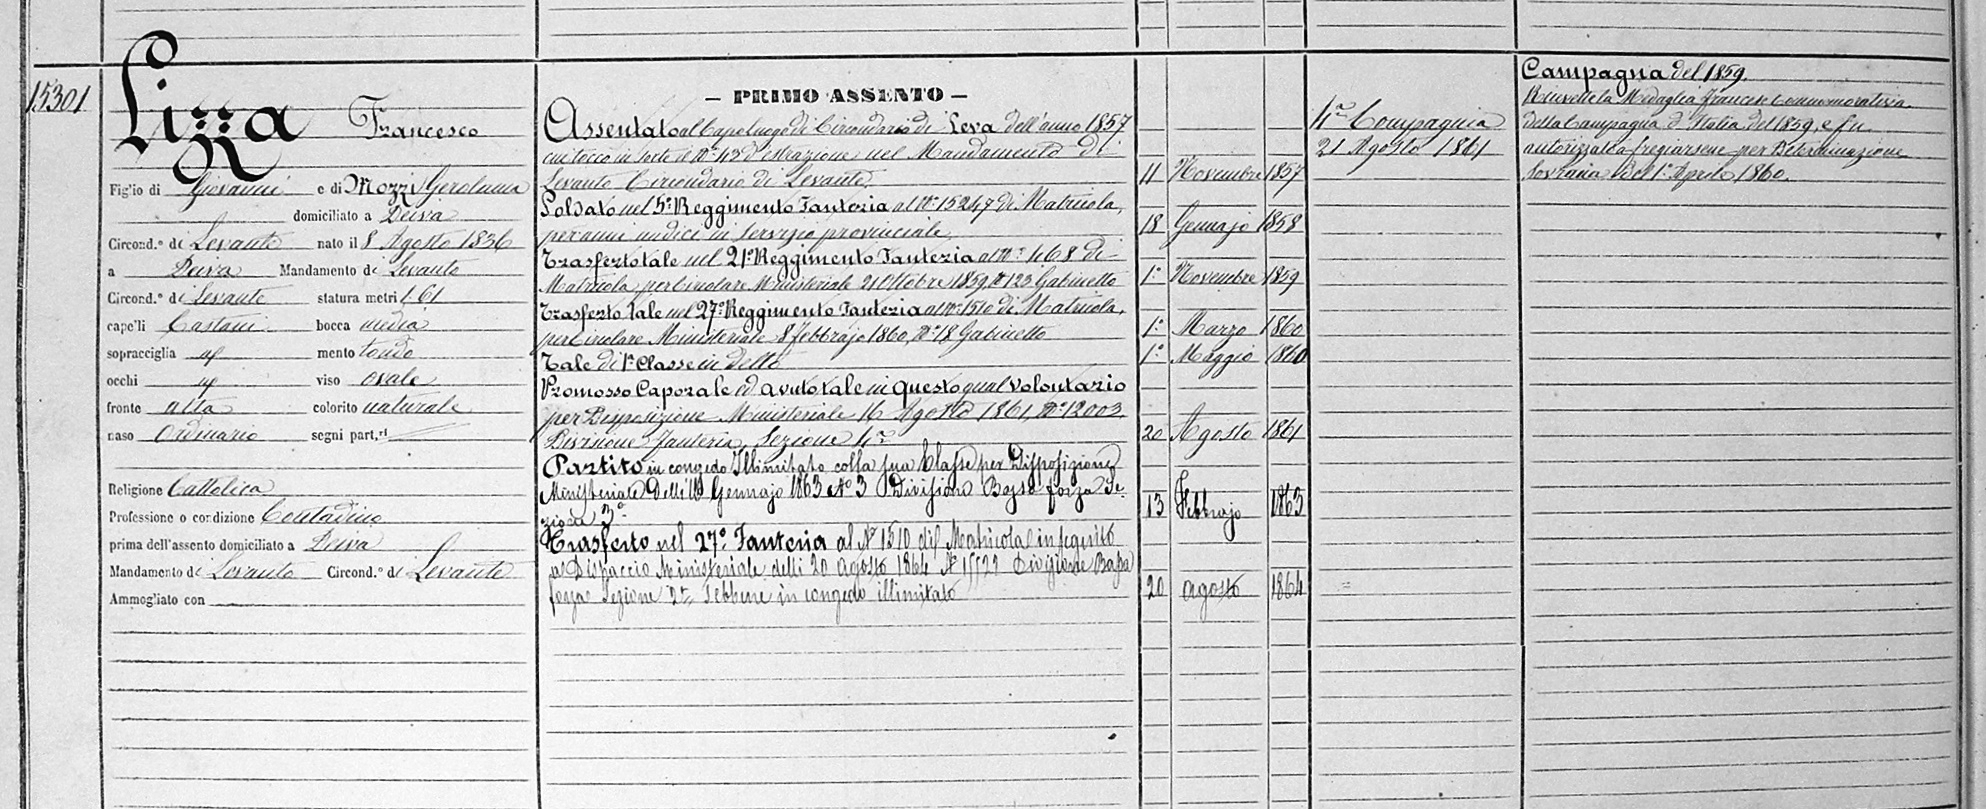 15301
Lizza Francesco
Figlio di Giovanni e di Mozzi Gerolama
domiciliato a Deiva
Circond.º di Levanto nato il 8 Agosto 1836
a Deiva Mandamento di Levanto
Circond.º di Levante statura metri 1,61
capelli Castani bocca media
sopracciglia id mento tondo
occhi id viso ovale
fronte alta colorito naturale
naso Ordinario segni part.ri
Religione Cattolica
Professione o condizione Contadino
prima dell'assento domiciliato a Deiva
Mandamento di Levanto Circond.º di Levante
Ammogliato con
— PRIMO ASSENTO —
Assentato al Capoluogo di Circondario di Leva dell'anno 1857
cui tocco in sorte il Nº 43 d'estrazione nel Mandamento di
Levanto Circondario di Levante. 11 Novembre 1857
Soldato nel 5º Reggimento Fanteria al Nº 15247 di Matricola,
per anni undici in servizio provinciale 18 Gennajo 1858
Trasferto tale nel 21º Reggimento Fanteria al Nº 4168 di
Matricola, per Circolare Ministeriale 21 Ottobre 1859, Nº 123 Gabinetto 1º Novembre 1859
Trasferto tale nel 27º Reggimento Fanteria al Nº 1510 di Matricola,
per Circolare Ministeriale 8 Febbrajo 1860, Nº 18 Gabinetto 1º Marzo 1860
Tale di 1ª Classe in detto 1º Maggio 1860
Promosso Caporale ed avuto tale in questo qual volontario
per Disposizione Ministeriale 16 Agosto 1861, Nº 12003
Divisione Fanteria, Sezione 4ª 20 Agosto 1861
Partito in congedo Illimitato colla sua Classe per Disposizione
Ministeriale delli Gennajo 1863 Nº 3 Divisione Bassa forza Se
zione 3ª 13 Febbrajo 1863
Trasferto nel 27º Fanteria al Nº 1510 di Matricola in seguito
a Dispaccio Ministeriale delli 20 agosto 1864 Nº Divisione Bassa
forza Sezione 2ª, sebbene in congedo illimitato 20 agosto 1864
4ª Compagnia
21 Agosto 1861
Campagna del 1859
Ricevette la Medaglia francese commemorativa
della Campagna d'Italia del 1859, e fu
autorizzato a fregiarsene per Determinazione
Sovrana del 1º Aprile 1860.